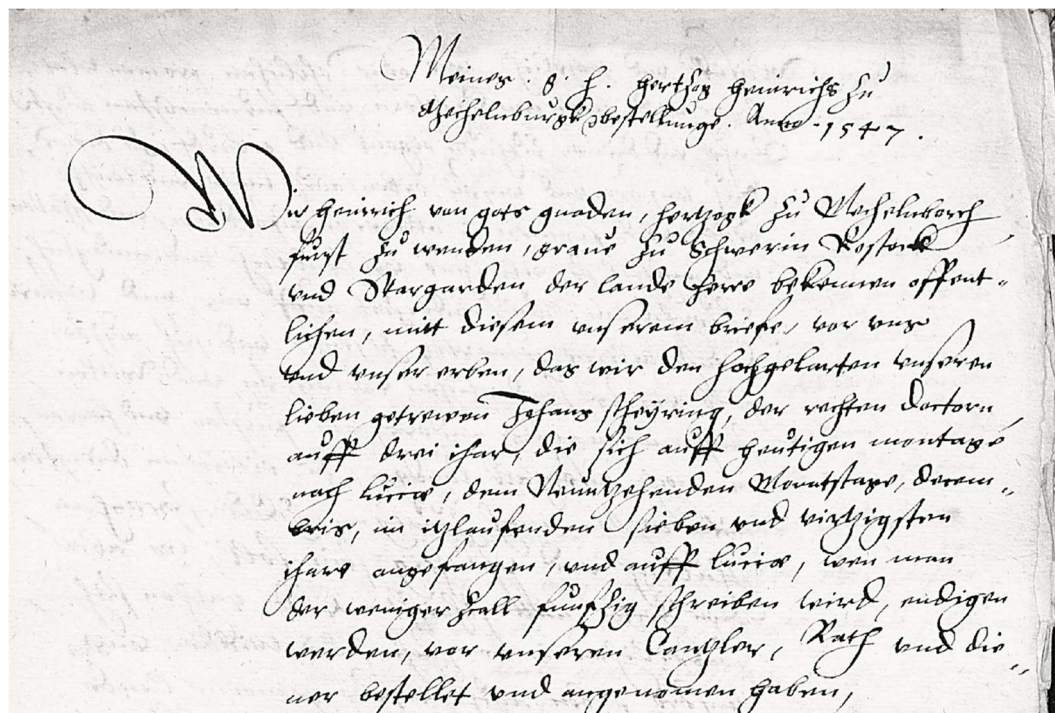 Meines g. h. hertzog heinrichs zu
Mechelnburgk bestellunge. Anno. 1547.
Wir heinrich von gots gnaden, hertzogk zu Mechelnborch
furst zu wenden, graue zu Schwerin Rostock
vnd Stargarden der lande herre bekennen offent-
lichen, mitt diesem vnserem briefe, vor vns
vnd vnser erben, das wir den hochgelarten vnseren
lieben getrewen Johans scheyring, der rechten doctorn
auff drei ihar, die sich auff heutigen montage
nach lucie, dem Neuntzehenden Monatstage, decem-
bris, im itzlaufenden sieben vnd virtzigsten
ihare angefangen, vnd auff lucie, wen man
der weniger zall funfzig schreiben wird, endigen
werden, vor vnseren Cantzler, Rath vnd die-
ner bestellet vnd angenomen haben,